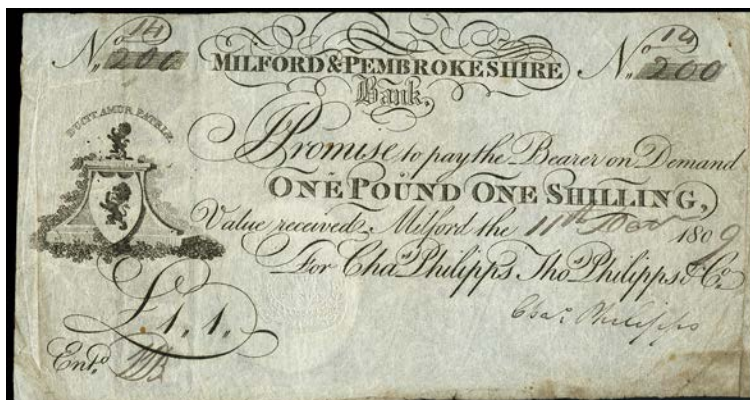 No 14 200 No 14 200
MILFORD & PEMBROKESHIRE
Bank,
DUCIT AMOR PATRIÆ.
Promise to pay the Bearer on Demand
ONE POUND ONE SHILLING,
Value received, Milford the 11th Nov 1809
For Chas Philipps Thos Philipps & Co
Chas Philipps
£1,,1,,
Entd